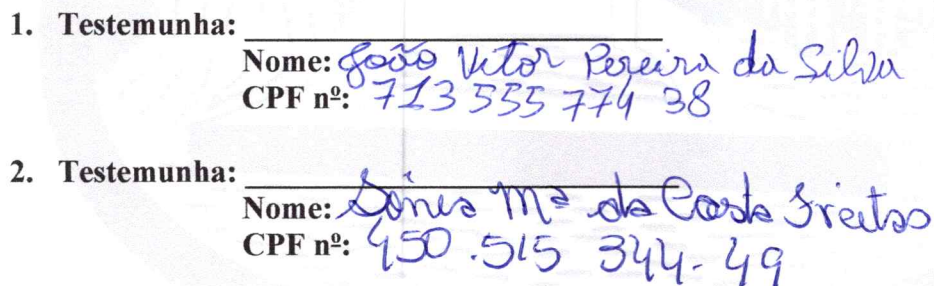 1. Testemunha:
Nome: João Vitor Pereira da Silva
CPF nº: 713 555 774 38
2. Testemunha:
Nome: Sônia Mª da Costa Freitas
CPF nº: 450.515 344-49